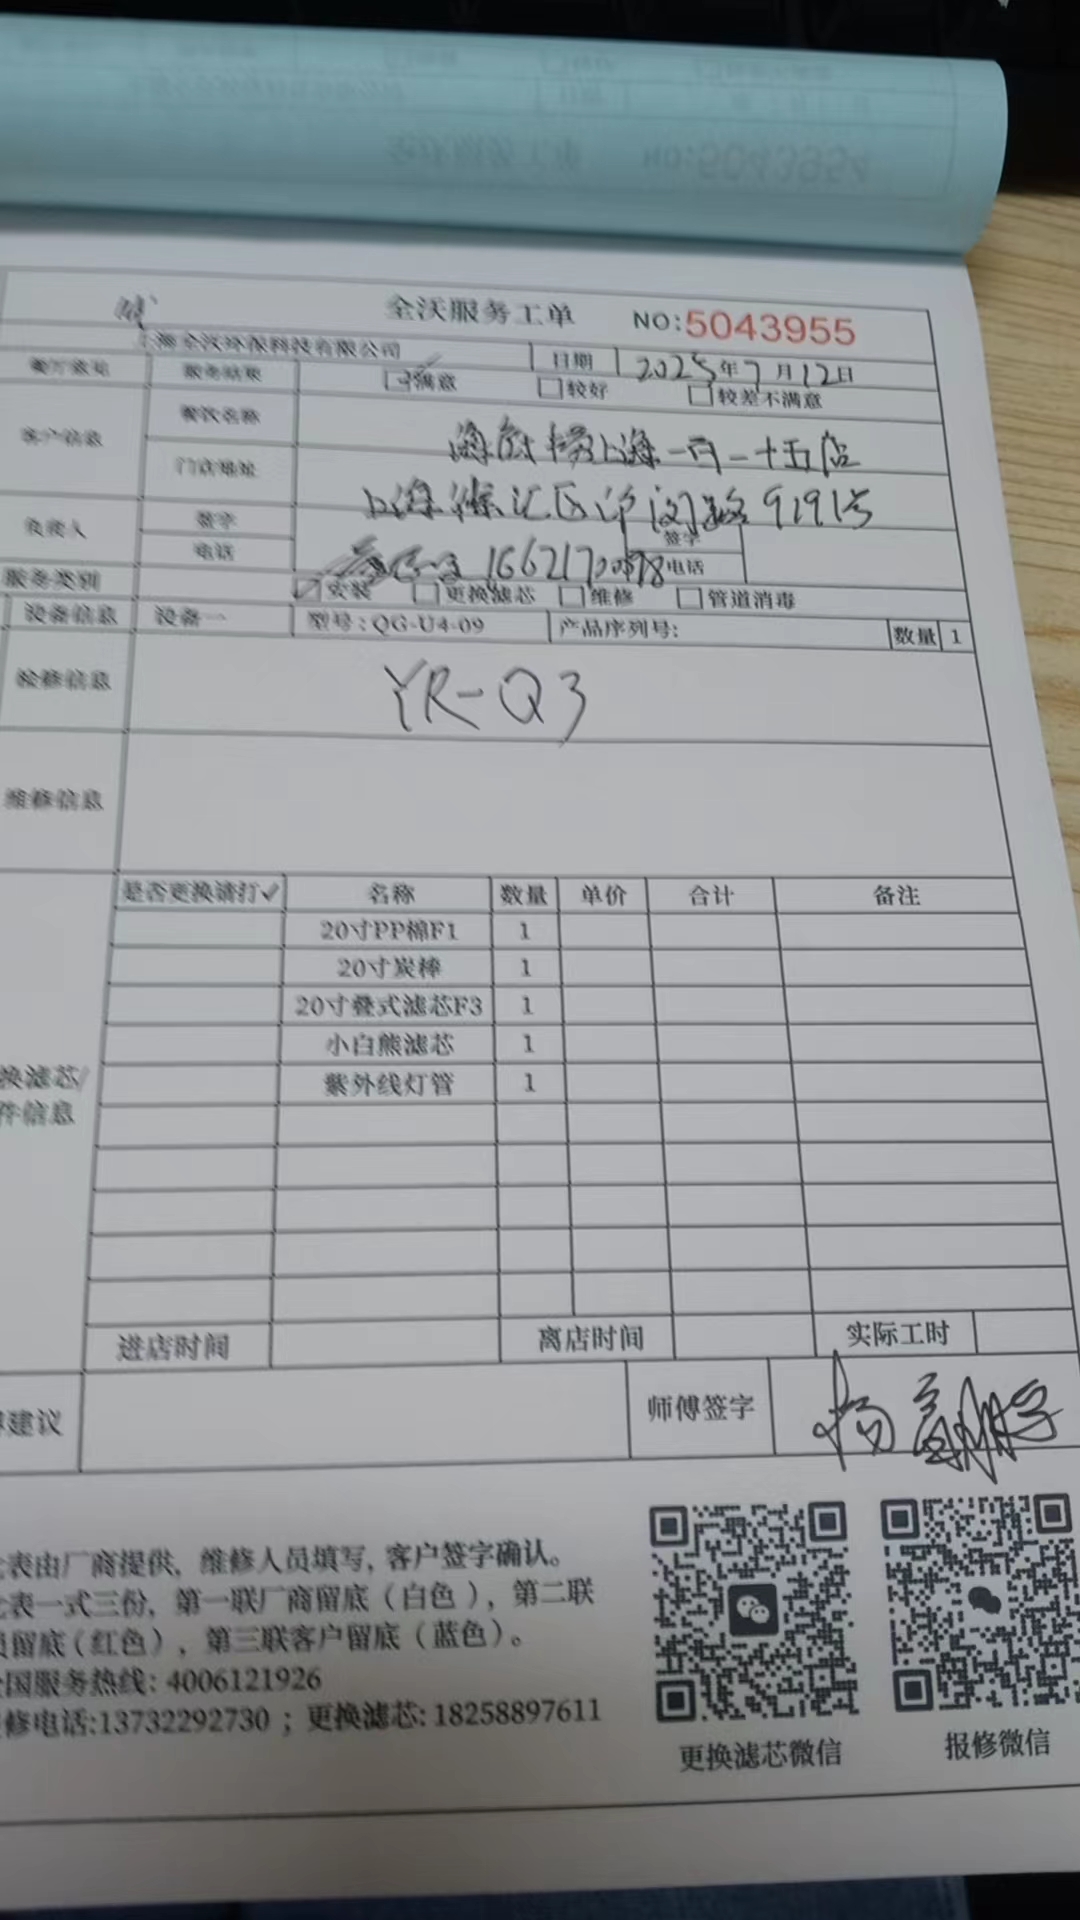 全沃服务工单 NO:5043955
上海全沃环保科技有限公司 日期 2025年7月12日
服务结果 满意 较好 较差不满意
客户信息 餐饮名称
上海一百一十五店
门店地址 上海徐汇区沪闵路9191号
负责人 签字 签字
电话 电话
服务类别 安装 更换滤芯 维修 管道消毒
设备信息 设备一 型号:QG-U4-09 产品序列号: 数量 1
检修信息 YR-Q3
维修信息
是否更换请打✓ 名称 数量 单价 合计 备注
20寸PP棉F1 1
20寸炭棒 1
20寸叠式滤芯F3 1
小白熊滤芯 1
换滤芯/
紫外线灯管 1
件信息
进店时间 离店时间 实际工时
建议 师傅签字
表由厂商提供, 维修人员填写, 客户签字确认。
表一式三份, 第一联厂商留底(白色), 第二联
留底(红色), 第三联客户留底(蓝色)。
国服务热线: 4006121926
修电话:13732292730 ; 更换滤芯: 18258897611
更换滤芯微信 报修微信